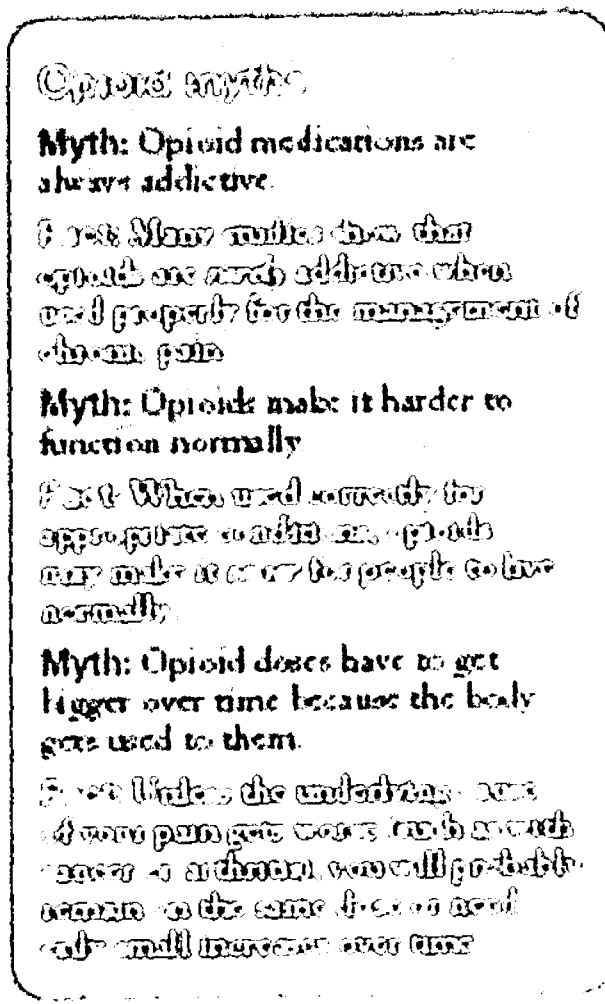 Opioid myths
Myth: Opioid medications are
always addictive.
Fact: Many studies show that
opioids are rarely addictive when
used properly for the management of
chronic pain.
Myth: Opioids make it harder to
function normally.
Fact: When used correctly for
appropriate conditions, opioids
may make it easier for people to live
normally.
Myth: Opioid doses have to get
bigger over time because the body
gets used to them.
Fact: Unless the underlying cause
of your pain gets worse (such as with
cancer or arthritis), you will probably
remain on the same dose or need
only small increases over time